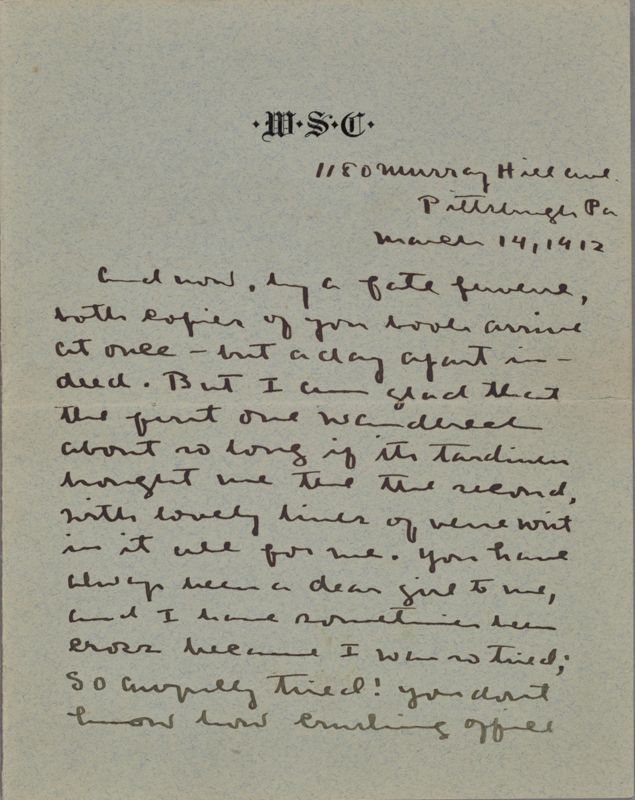 ·W·S·C·
1180 Murray Hill Ave.
Pittsburgh Pa
March 14, 1912
And now, by a fate perverse,
both copies of your book arrive
at once – but a day apart in-
deed. But I am glad that
the first one wandered
about so long if its tardiness
brought me the the second,
with lovely lines of verse writ
in it all for me. You have
always been a dear girl to me,
and I have sometimes been
cross because I was so tired;
so awfully tired! You don't
know how crushing office